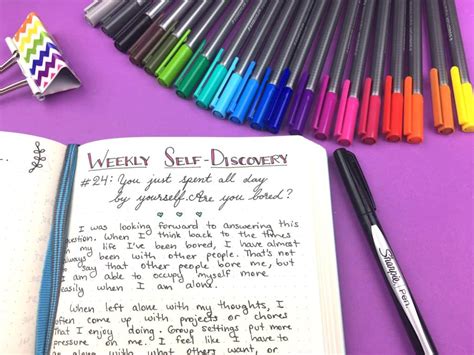 WEEKLY SELF-DISCOVERY
#24: You just spent all day
by yourself. Are you bored?
I was looking forward to answering this
question. When I think back to the times
in my life I've been bored, I have almost
always been with other people. That's not
to say that other people bore me, but
I am able to occupy myself more
easily when I am alone.
When left alone with my thoughts, I
often come up with projects or chores
that I enjoy doing. Group settings put more
pressure on me. I feel like I have to
go along with what others want, or
Sharpie. Pen.